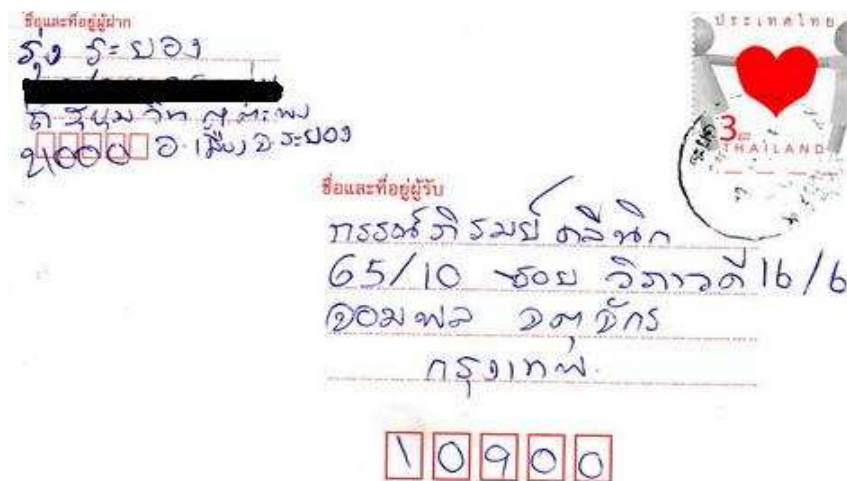 ชื่อและที่อยู่ผู้ฝาก
รุ่ง ระยอง
ถ. สุขุมวิท ต.
21000 อ.เมือง จ.ระยอง
ประเทศไทย
3
THAILAND
ชื่อและที่อยู่ผู้รับ
กรรณ์ภิรมย์ คลีนิก
65/10 ซอย วิภาวดี 16/6
จอมพล จตุจักร
กรุงเทพ.
10900